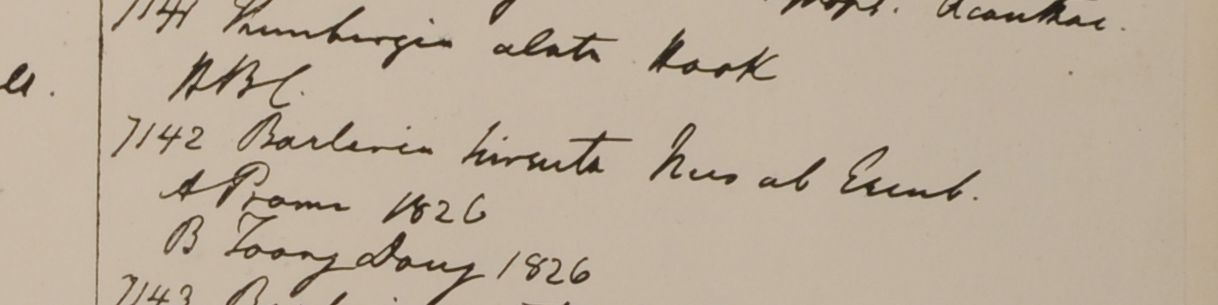 Acanthac.
7141 Thunbergia alata Hook
HBC.
7142 Barleria hirsuta Nees ab Esenb.
A Prome 1826
B Toong Dong 1826
7143